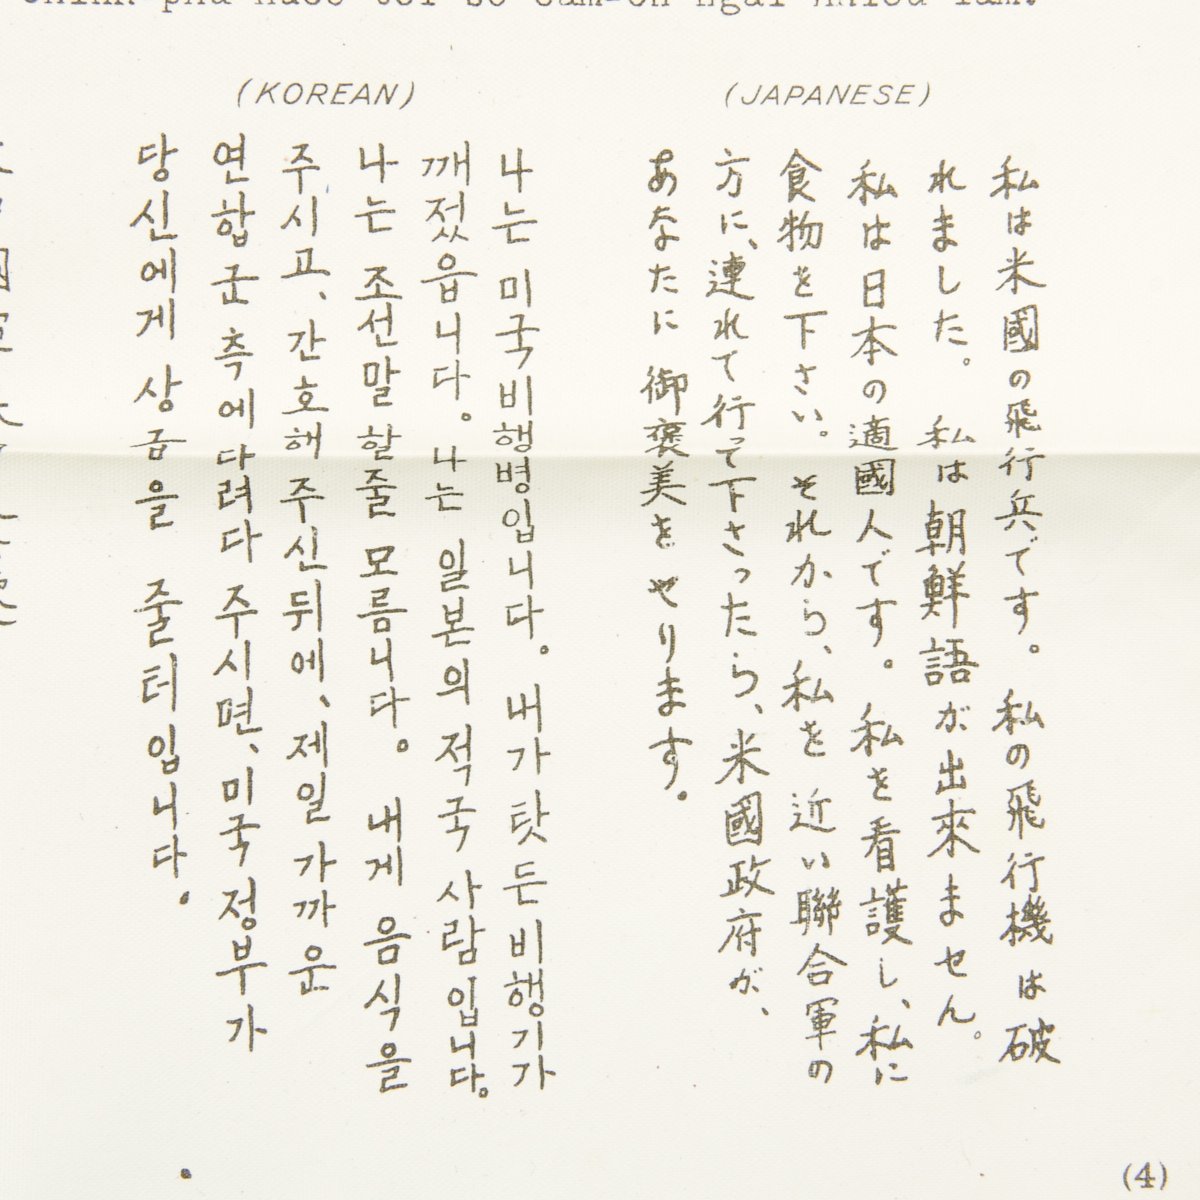 (KOREAN)
나는 미국비행병입니다. 내가 탓든 비행기가
깨젔읍니다. 나는 일본의 적국 사람입니다.
나는 조선말 할줄 모름니다. 내게 음식을
주시고, 간호해 주신뒤에, 제일 가까운
연합군측에 다려다 주시면, 미국정부가
당신에게 상금을 줄터입니다.
(JAPANESE)
私は米國の飛行兵です。私の飛行機は破
れました。私は朝鮮語が出來ません。
私は日本の適國人です。私を看護し、私に
食物を下さい。それから、私を近い聯合軍の
方に、連れて行って下さったら、米國政府が、
あなたに御褒美をやります。
(4)